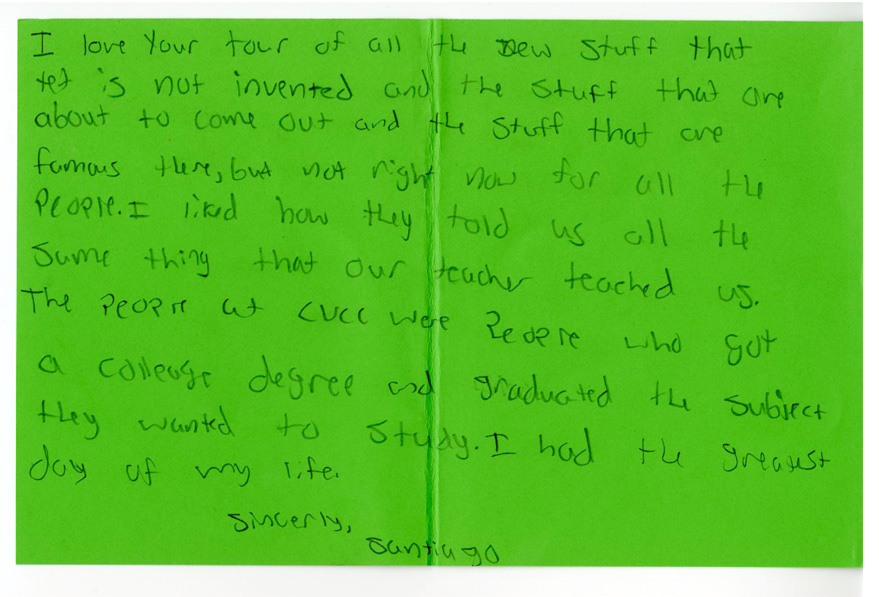 I love Your tour of all the new stuff that
yet is not invented and the stuff that are
about to come out and the stuff that are
famous there, but not right now for all the
People. I liked how they told us all the
same thing that our teacher teached us.
The People at CVCC were People who got
a colleage degree and graduated the subject
they wanted to study. I had the greatest
day of my life.
Sincerly,
Santiago